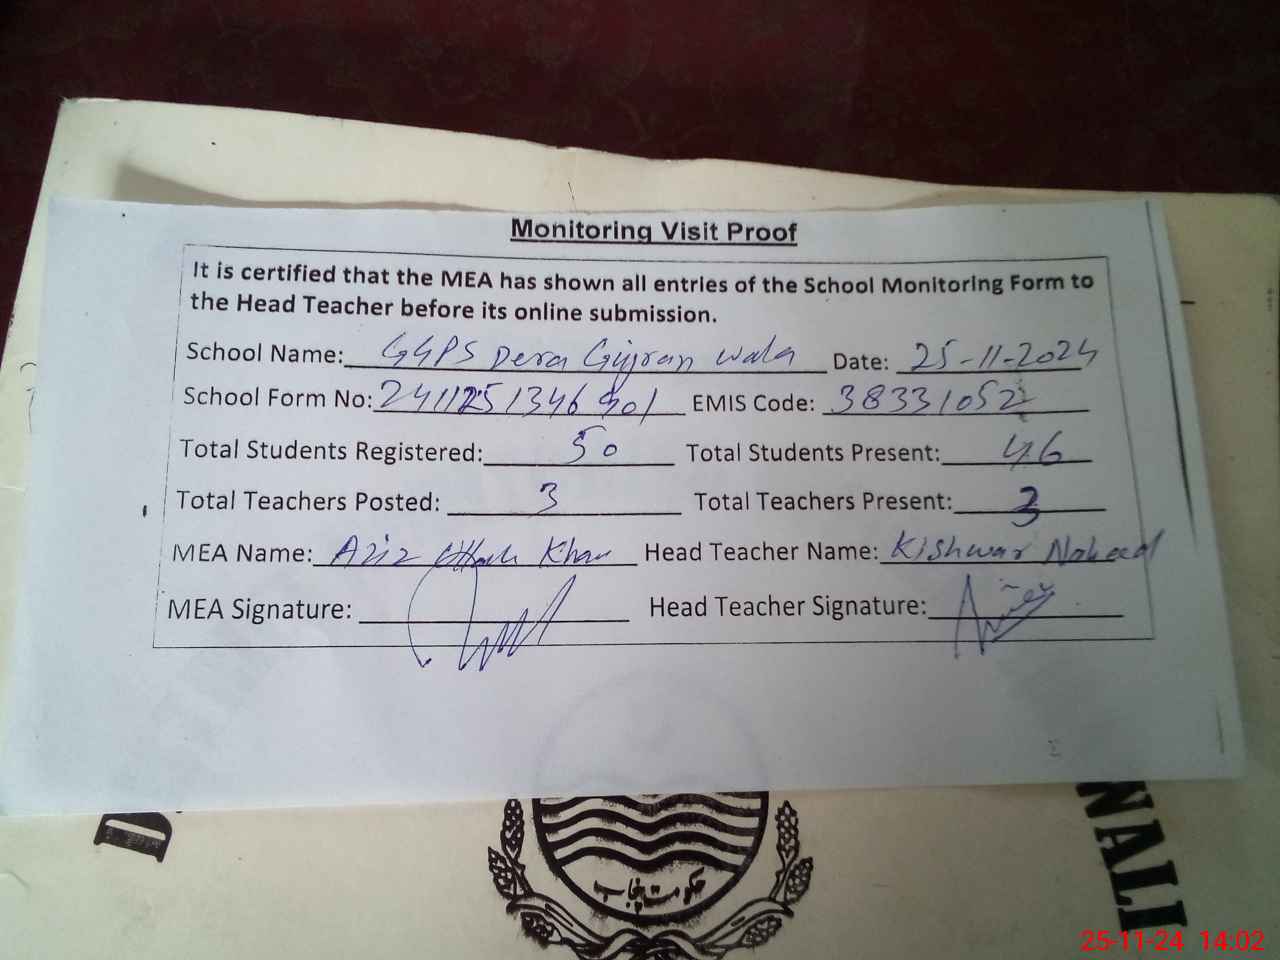 Monitoring Visit Proof
It is certified that the MEA has shown all entries of the School Monitoring Form to
the Head Teacher before its online submission.
School Name: GGPS Dera Gujran Wala Date: 25-11-2024
School Form No: EMIS Code: 38331052
Total Students Registered: 50 Total Students Present: 46
Total Teachers Posted: 3 Total Teachers Present: 3
MEA Name: Aziz Ullah Khan Head Teacher Name: Kishwar Naheed
MEA Signature: Head Teacher Signature:
D NALI
حکومت پنجاب
25-11-24 14:02